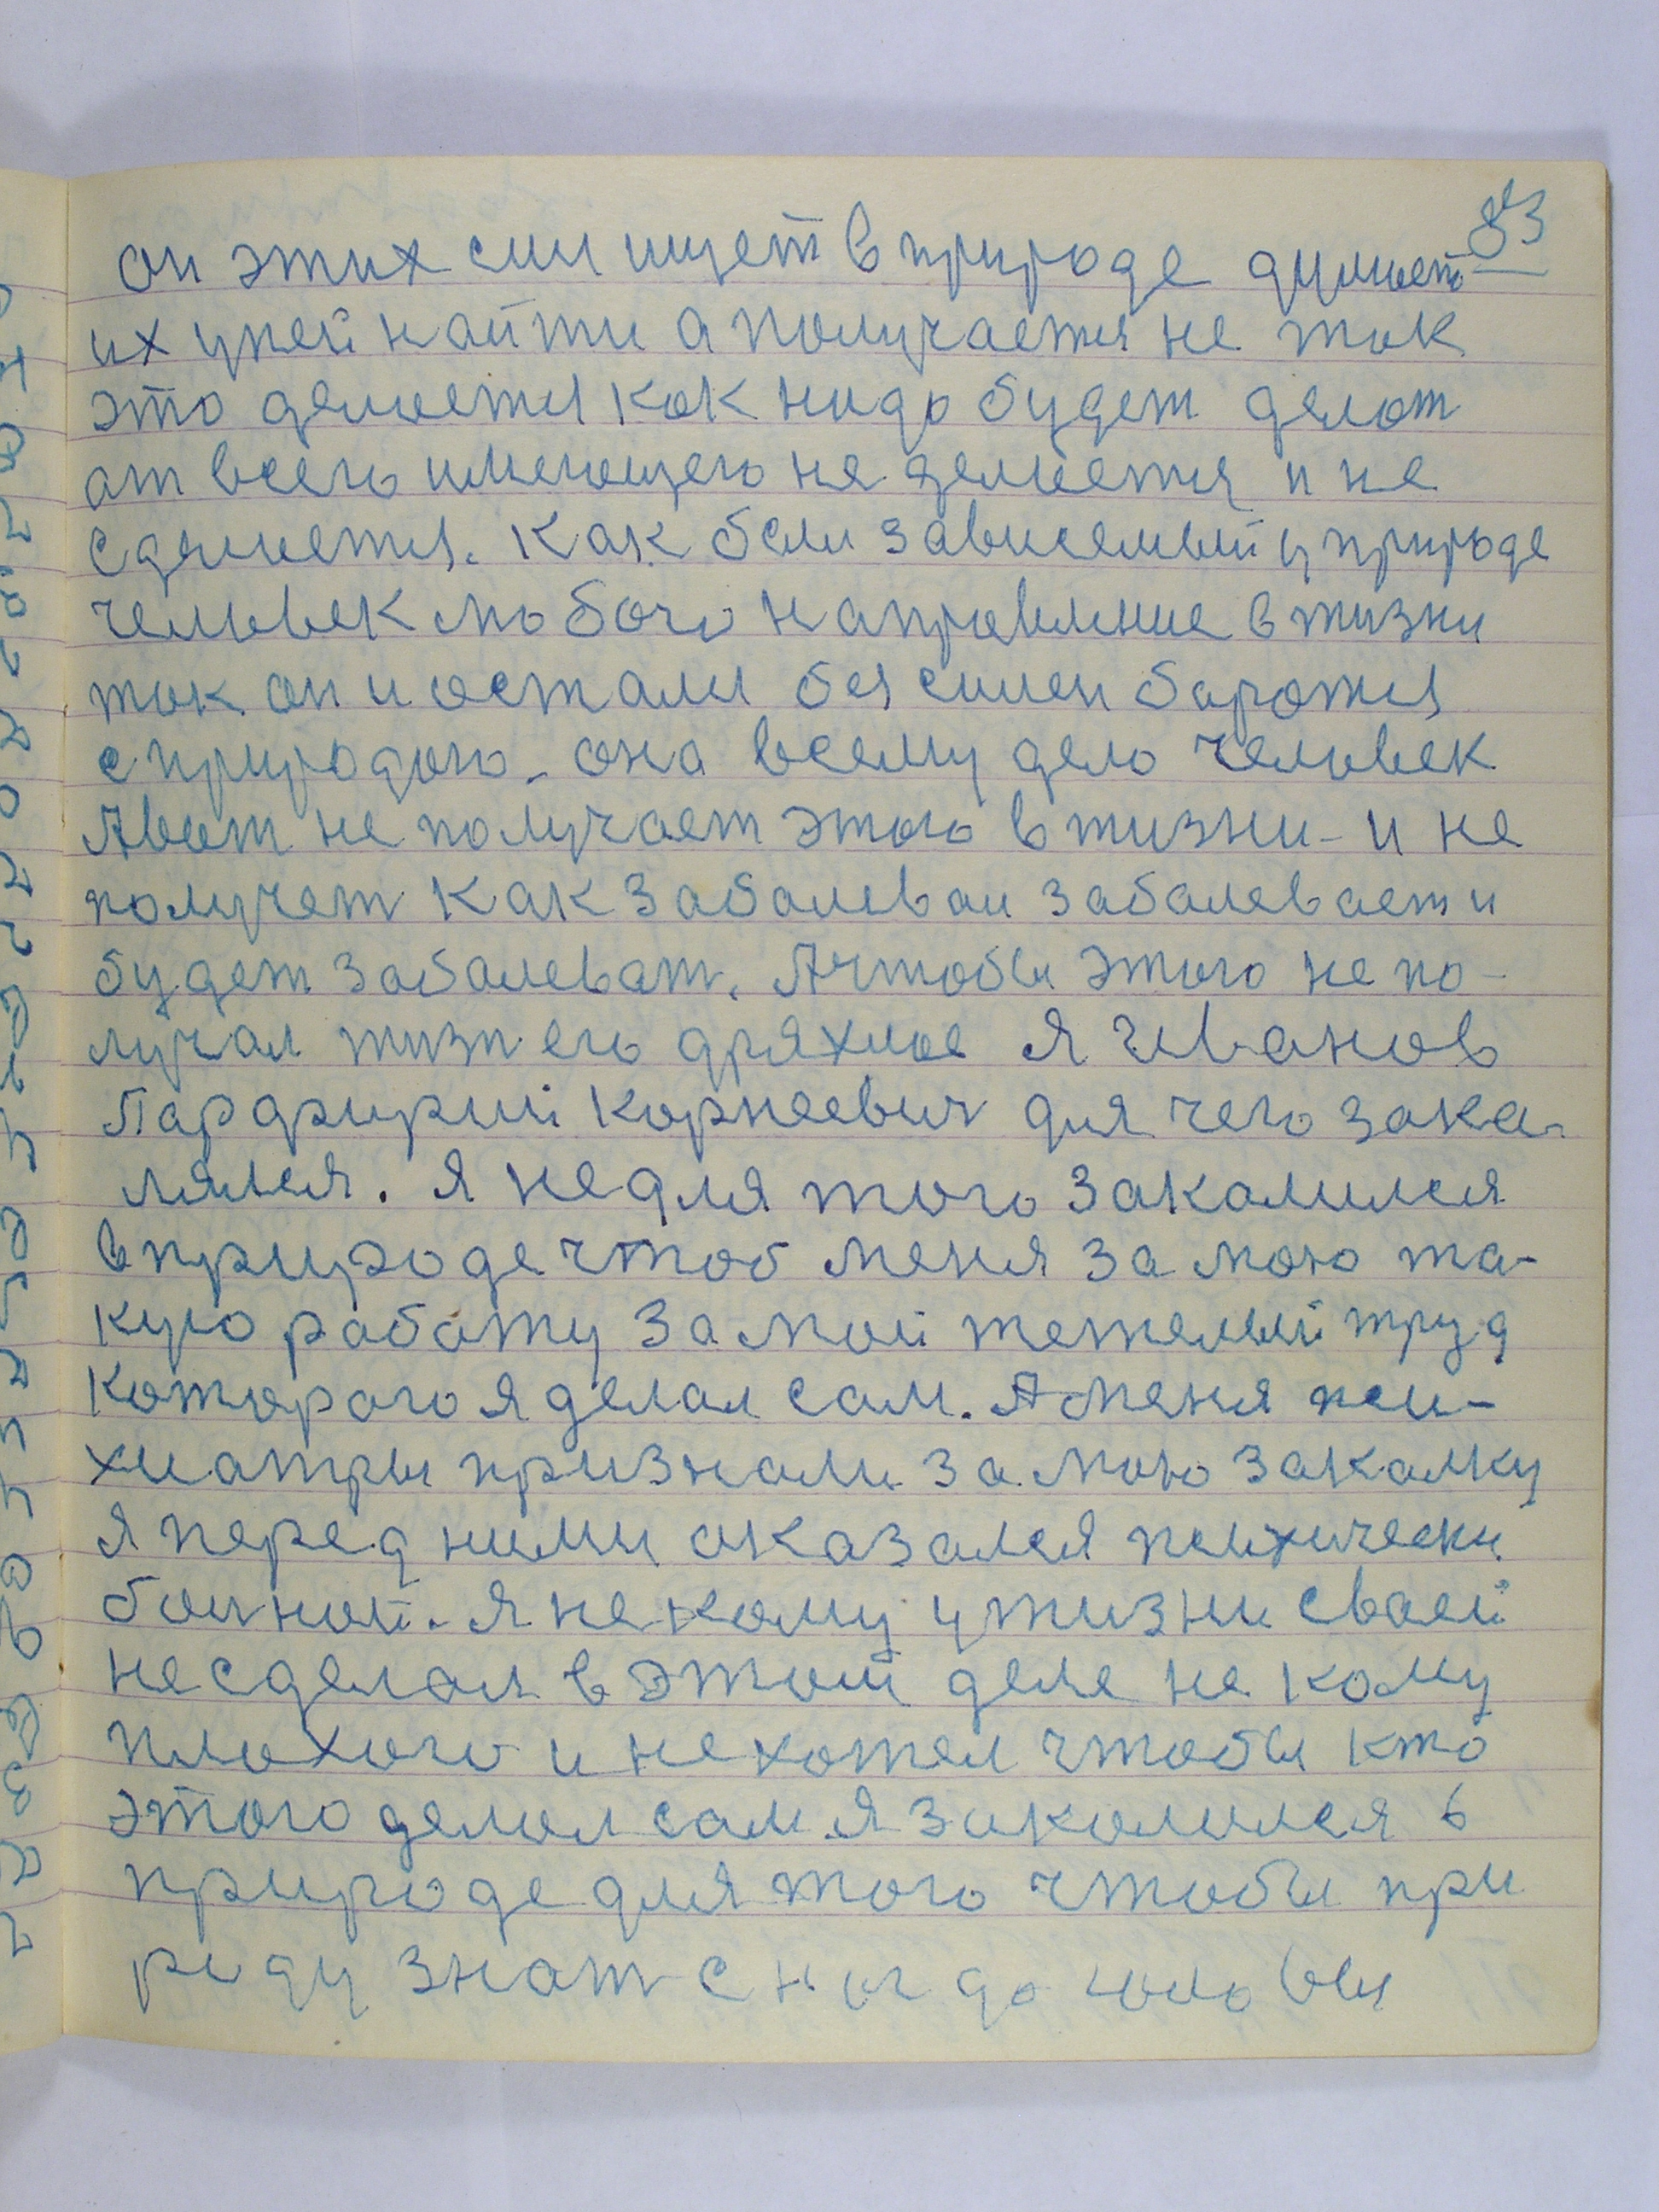 83
он этих сил ищет в природе думает
их у ней найти а получается не так
это делается как надо будет делат
от всего имеющего не делается и не
сделается. Как был зависемый у природе
человек любого направление в жизни
так он и остался без силен боротся
с природою. она всему дело человек
А вот не получает этого в жизни - и не
получет как заболевал заболевает и
будет заболеват. А чтобы этого не по-
лучал жизн его дряхлое Я Иванов
Парфирий Корнеевич для чего зака-
лялся. Я не для того закалился
в природе чтоб меня за мою та-
кую работу за мой тежелый труд
которого я делал сам. А меня пси-
хиатры признали за мою закалку
я перед ними оказался психически
болной. Я не кому у жизни своей
не сделал в этом деле не кому
плохого и не хотел чтобы кто
этого делал сам Я закалился в
природе для того чтобы при
роду знат с ног до головы